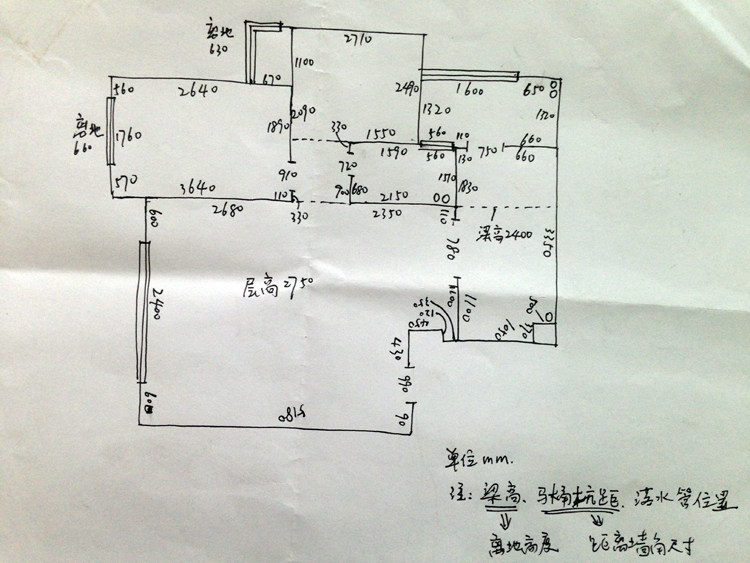 离地
630
2710
1100
670
2640
560
2490
1600
650
1320
1320
离地
660
1760
2090
1890
330
1550
1590
560
560
110
130
750
660
660
570
3640
910
720
110
900
680
2150
1510
1830
600
2680
330
2350
110
梁高2400
3350
780
2400
层高2750
1100
350
120
450
500
370
1050
430
990
600
5180
90
单位mm.
注: 梁高、马桶坑距、落水管位置
离地高度 距离墙角尺寸